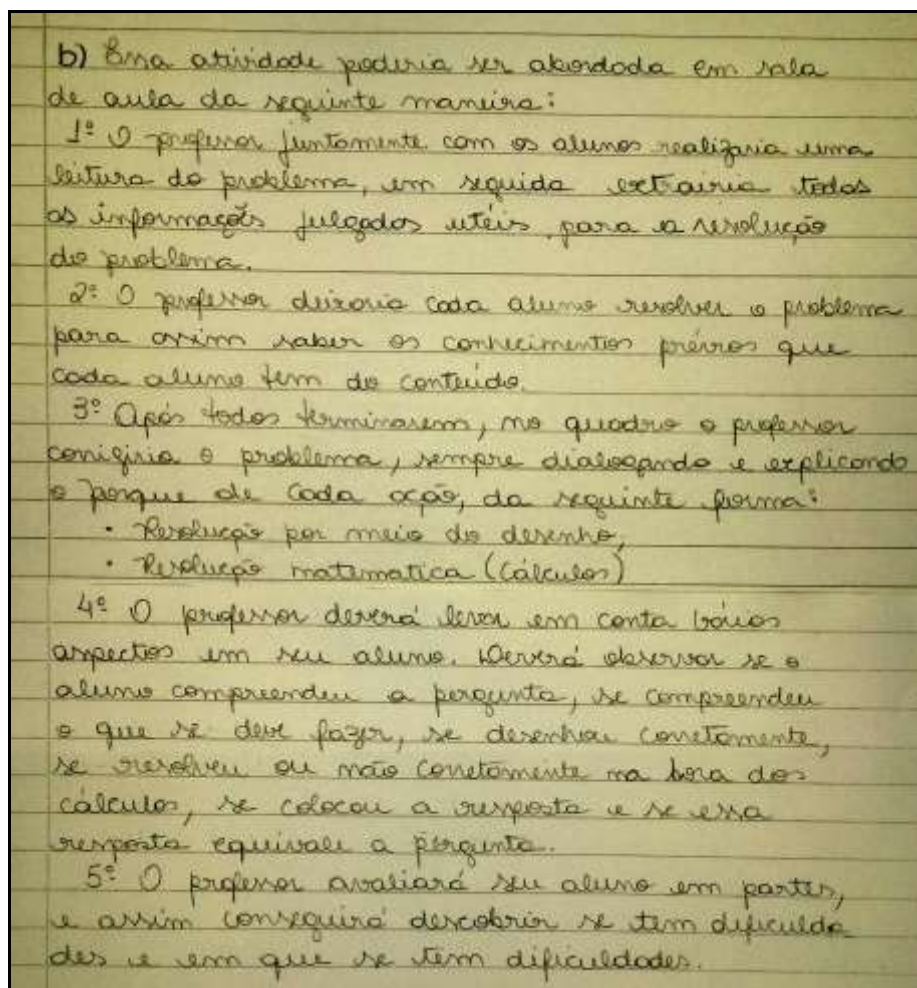 b) Essa atividade poderia ser abordada em sala
de aula da seguinte maneira:
1º O professor juntamente com os alunos realizaria uma
leitura do problema, em seguida extrairia todos
as informações julgados utéis para a resolução
do problema.
2º O professor deixaria cada aluno resolver o problema
para assim saber os conhecimentos prévios que
cada aluno tem do conteúdo.
3º Após todos terminarem, no quadro o professor
corrigiria o problema, sempre dialogando e explicando
o porque de cada ação, da seguinte forma:
· Resolução por meio do desenho;
· Resolução matematica (cálculos)
4º O professor deverá levar em conta vários
aspectos em seu aluno. Deverá observar se o
aluno compreendeu a pergunta, se compreendeu
o que se deve fazer, se desenhou corretamente,
se resolveu ou não corretamente na hora dos
cálculos, se colocou a resposta e se essa
resposta equivale a pergunta.
5º O professor avaliará seu aluno em partes,
e assim conseguirá descobrir se tem dificulda
des e em que se tem dificuldades.